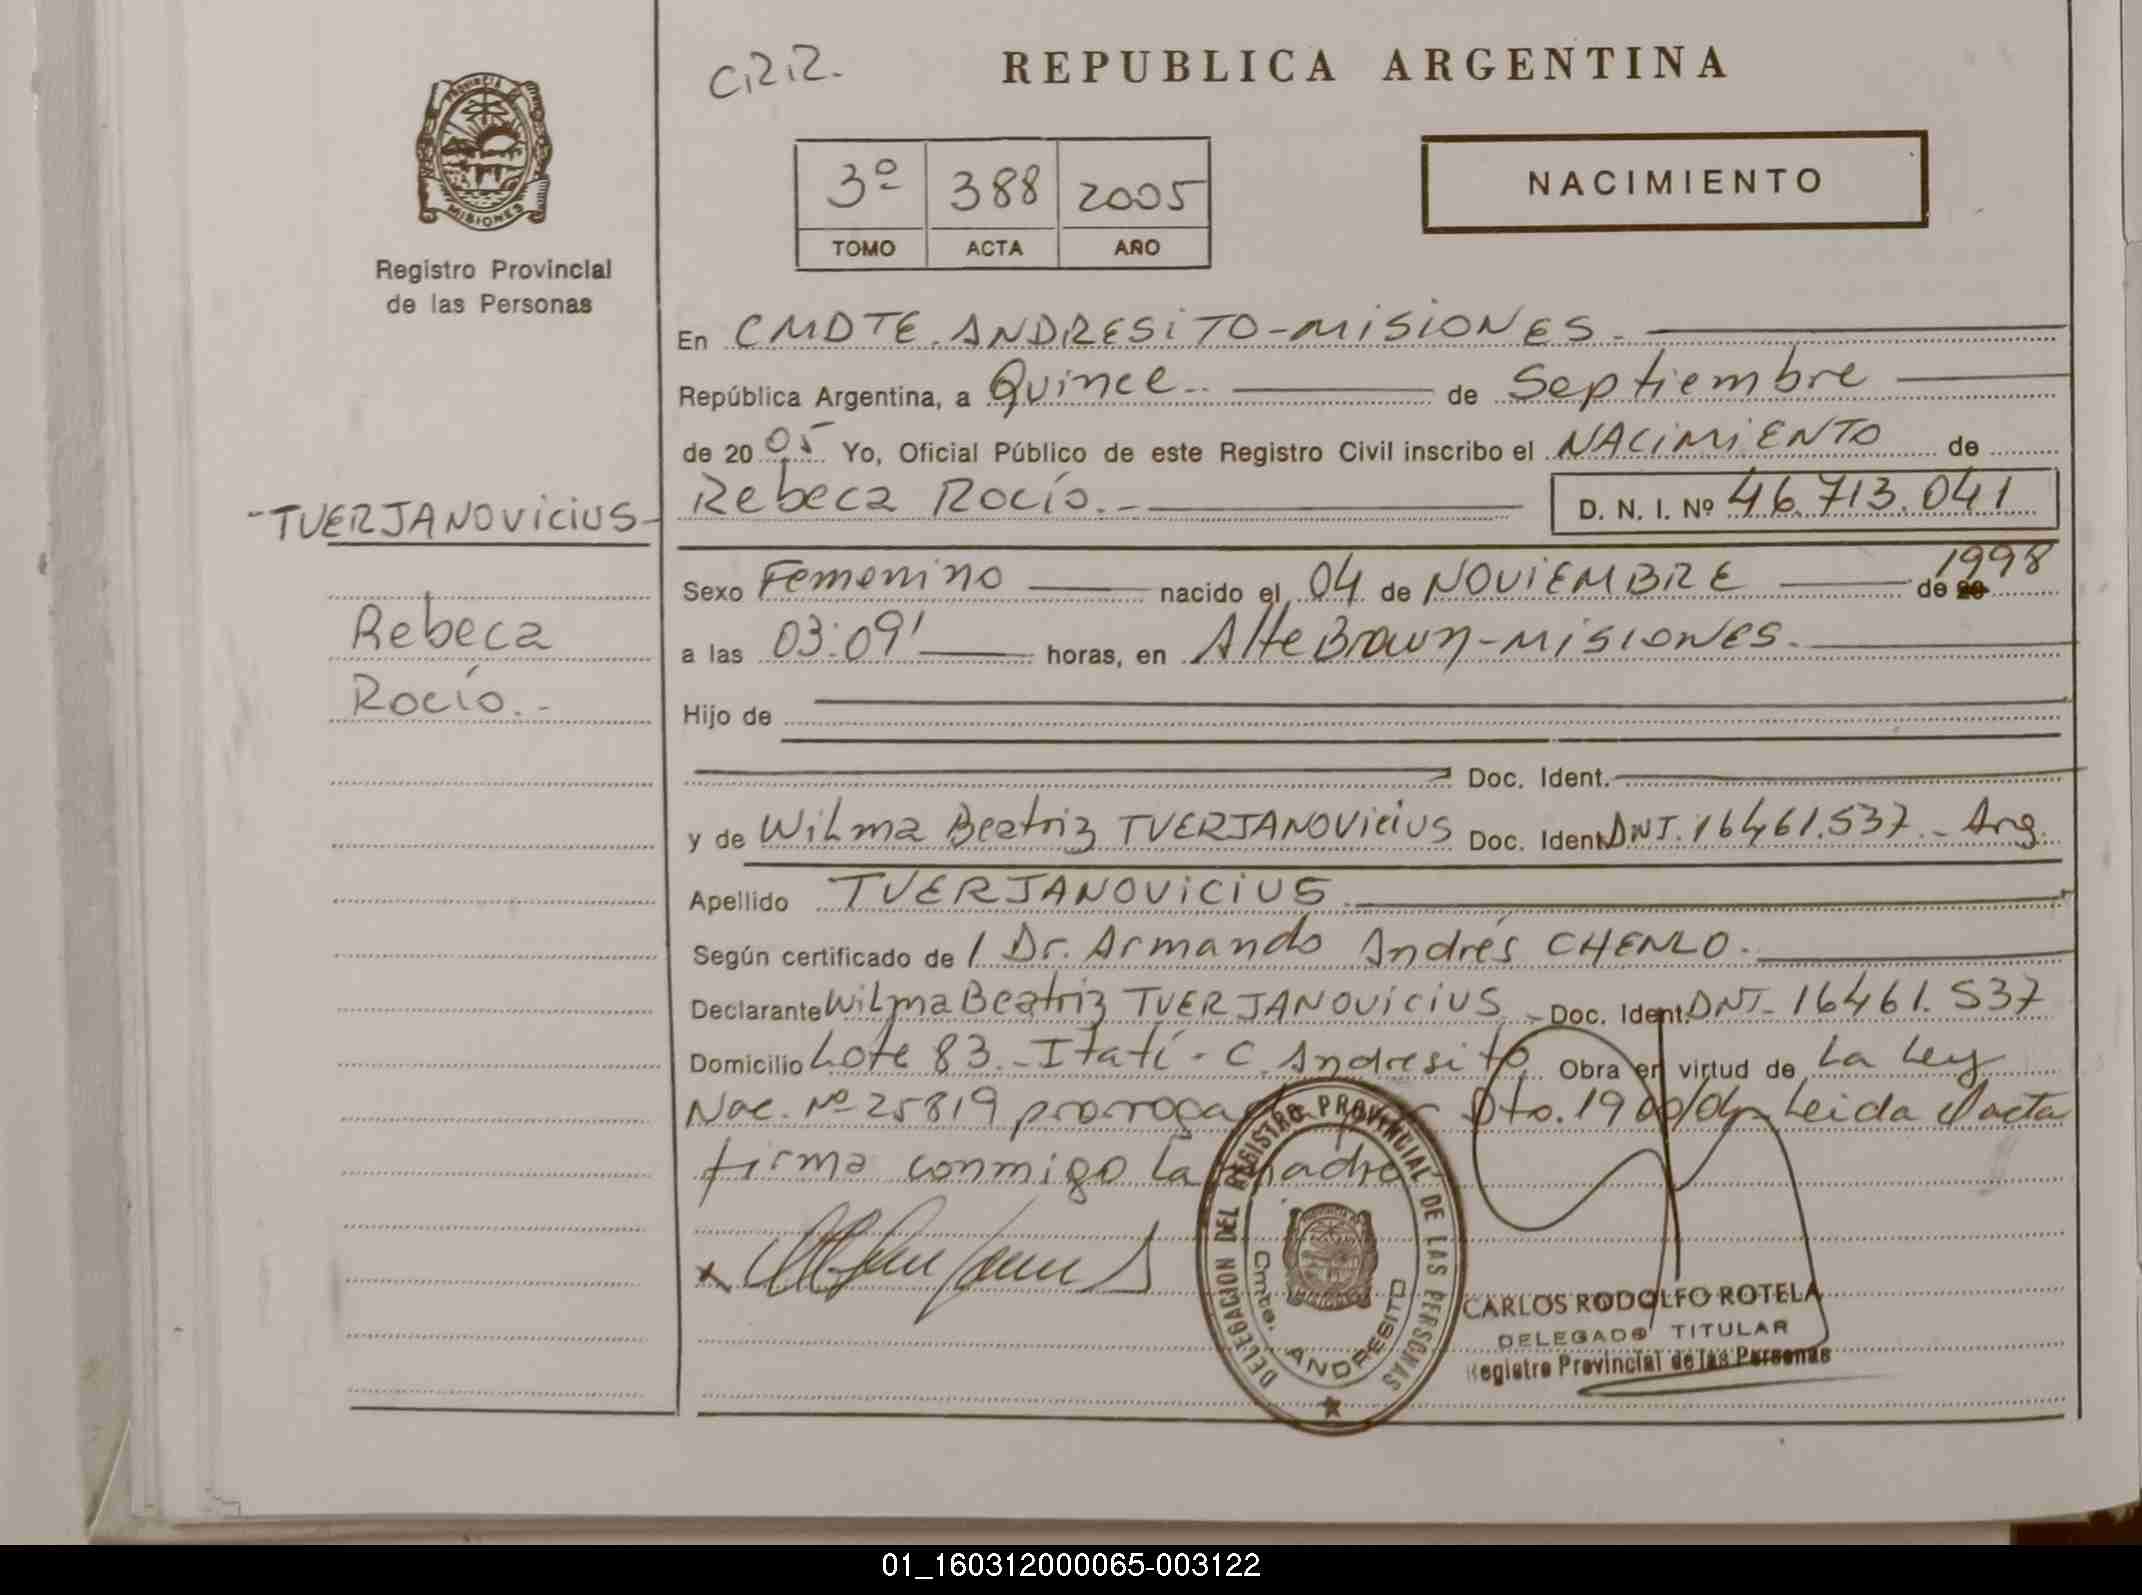 C.R.R.
REPUBLICA ARGENTINA
PROVINCIA DE
MISIONES
Registro Provincial
de las Personas
3º 388 2005
TOMO ACTA AÑO
NACIMIENTO
En CMDTE. ANDRESITO-MISIONES.
República Argentina, a Quince de Septiembre
de 20 05 Yo, Oficial Público de este Registro Civil inscribo el NACIMIENTO de
-TUERJANOVICIUS-
Rebeca Rocío.-
D. N. I. Nº 46.713.041
Sexo Femenino nacido el 04 de NOVIEMBRE de 1998
Rebeca
Rocío.-
a las 03:09' horas, en Alte Brown-MISIONES.
Hijo de
Doc. Ident.
y de Wilma Beatriz TVERJANOVICIUS Doc. Ident. DNI. 16461.537.- Arg.
Apellido TVERJANOVICIUS.
Según certificado de / Dr. Armando Andrés CHENLO.
Declarante Wilma Beatriz TVERJANOVICIUS.- Doc. Ident. DNI- 16461.537
Domicilio Lote 83.-Itatí- C. Andresito Obra en virtud de La Ley
Nac. Nº 25819 Dto. 1900/04 Leida el acta
firma conmigo la madre
DELEGACION DEL REGISTRO PROVINCIAL DE LAS PERSONAS
Cmte. ANDRESITO
CARLOS RODOLFO ROTELA
DELEGADO TITULAR
Registro Provincial de las Personas
01_160312000065-003122